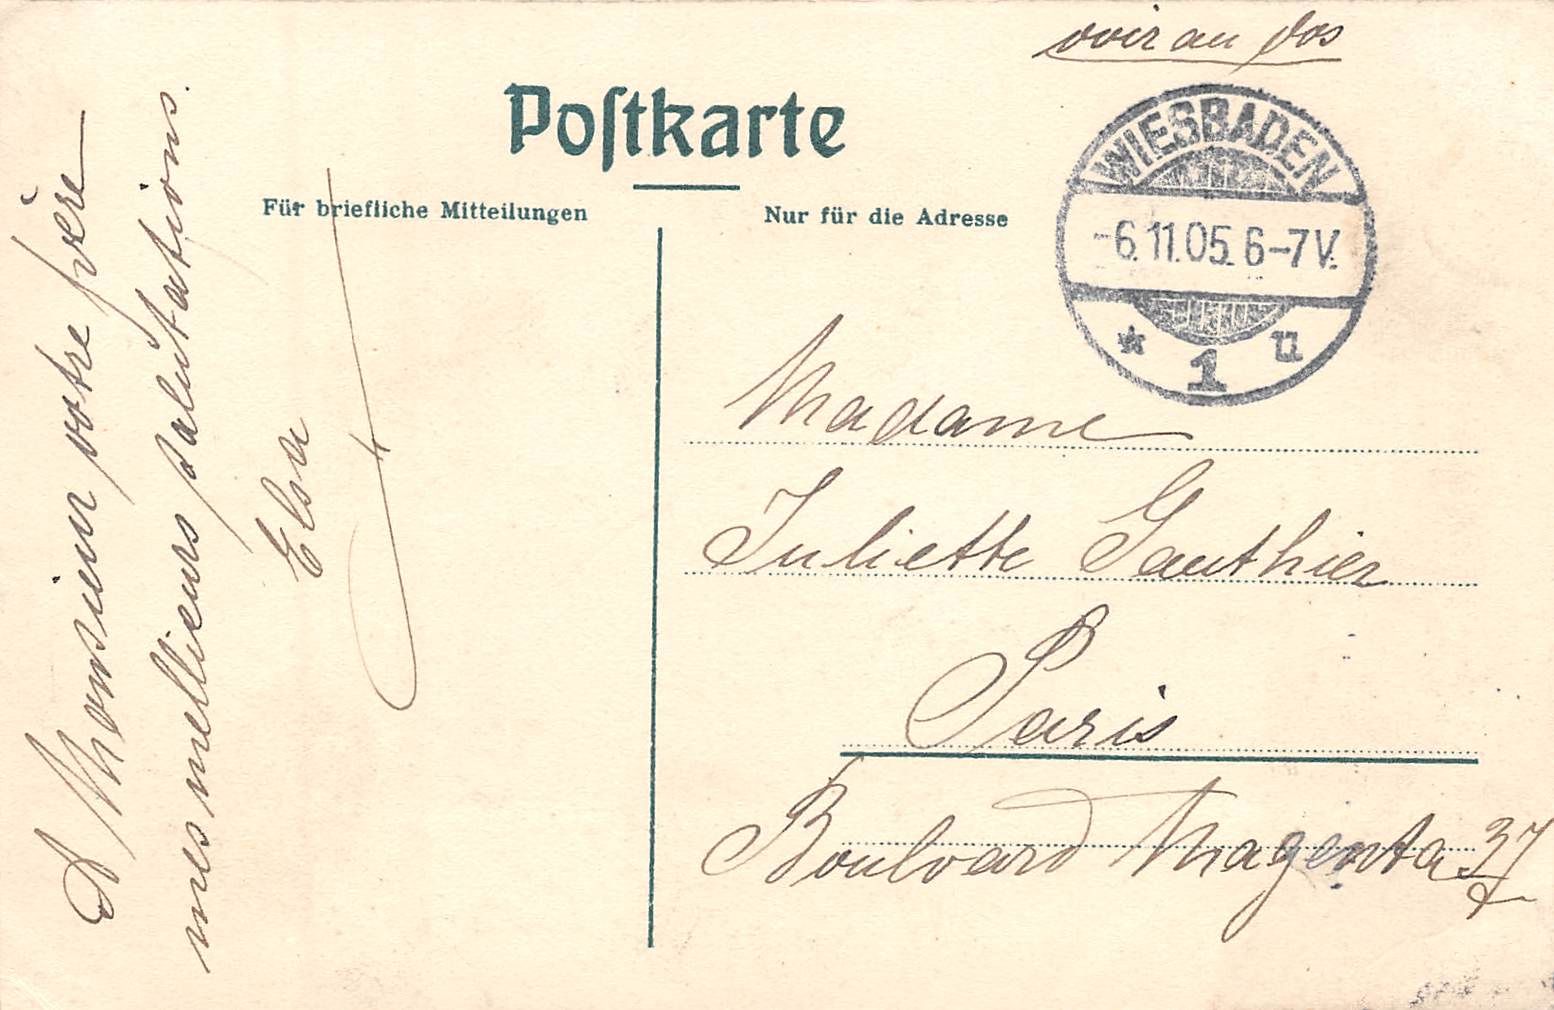 voir au dos
Postkarte
Für briefliche Mitteilungen
Nur für die Adresse
WIESBADEN
-6.11.05. 6-7V.
* 1 u
A Monsieur votre père
mes mellieurs salutations.
Elsa
Madame
Juliette Gauthier
Paris
Boulvard Magenta 37